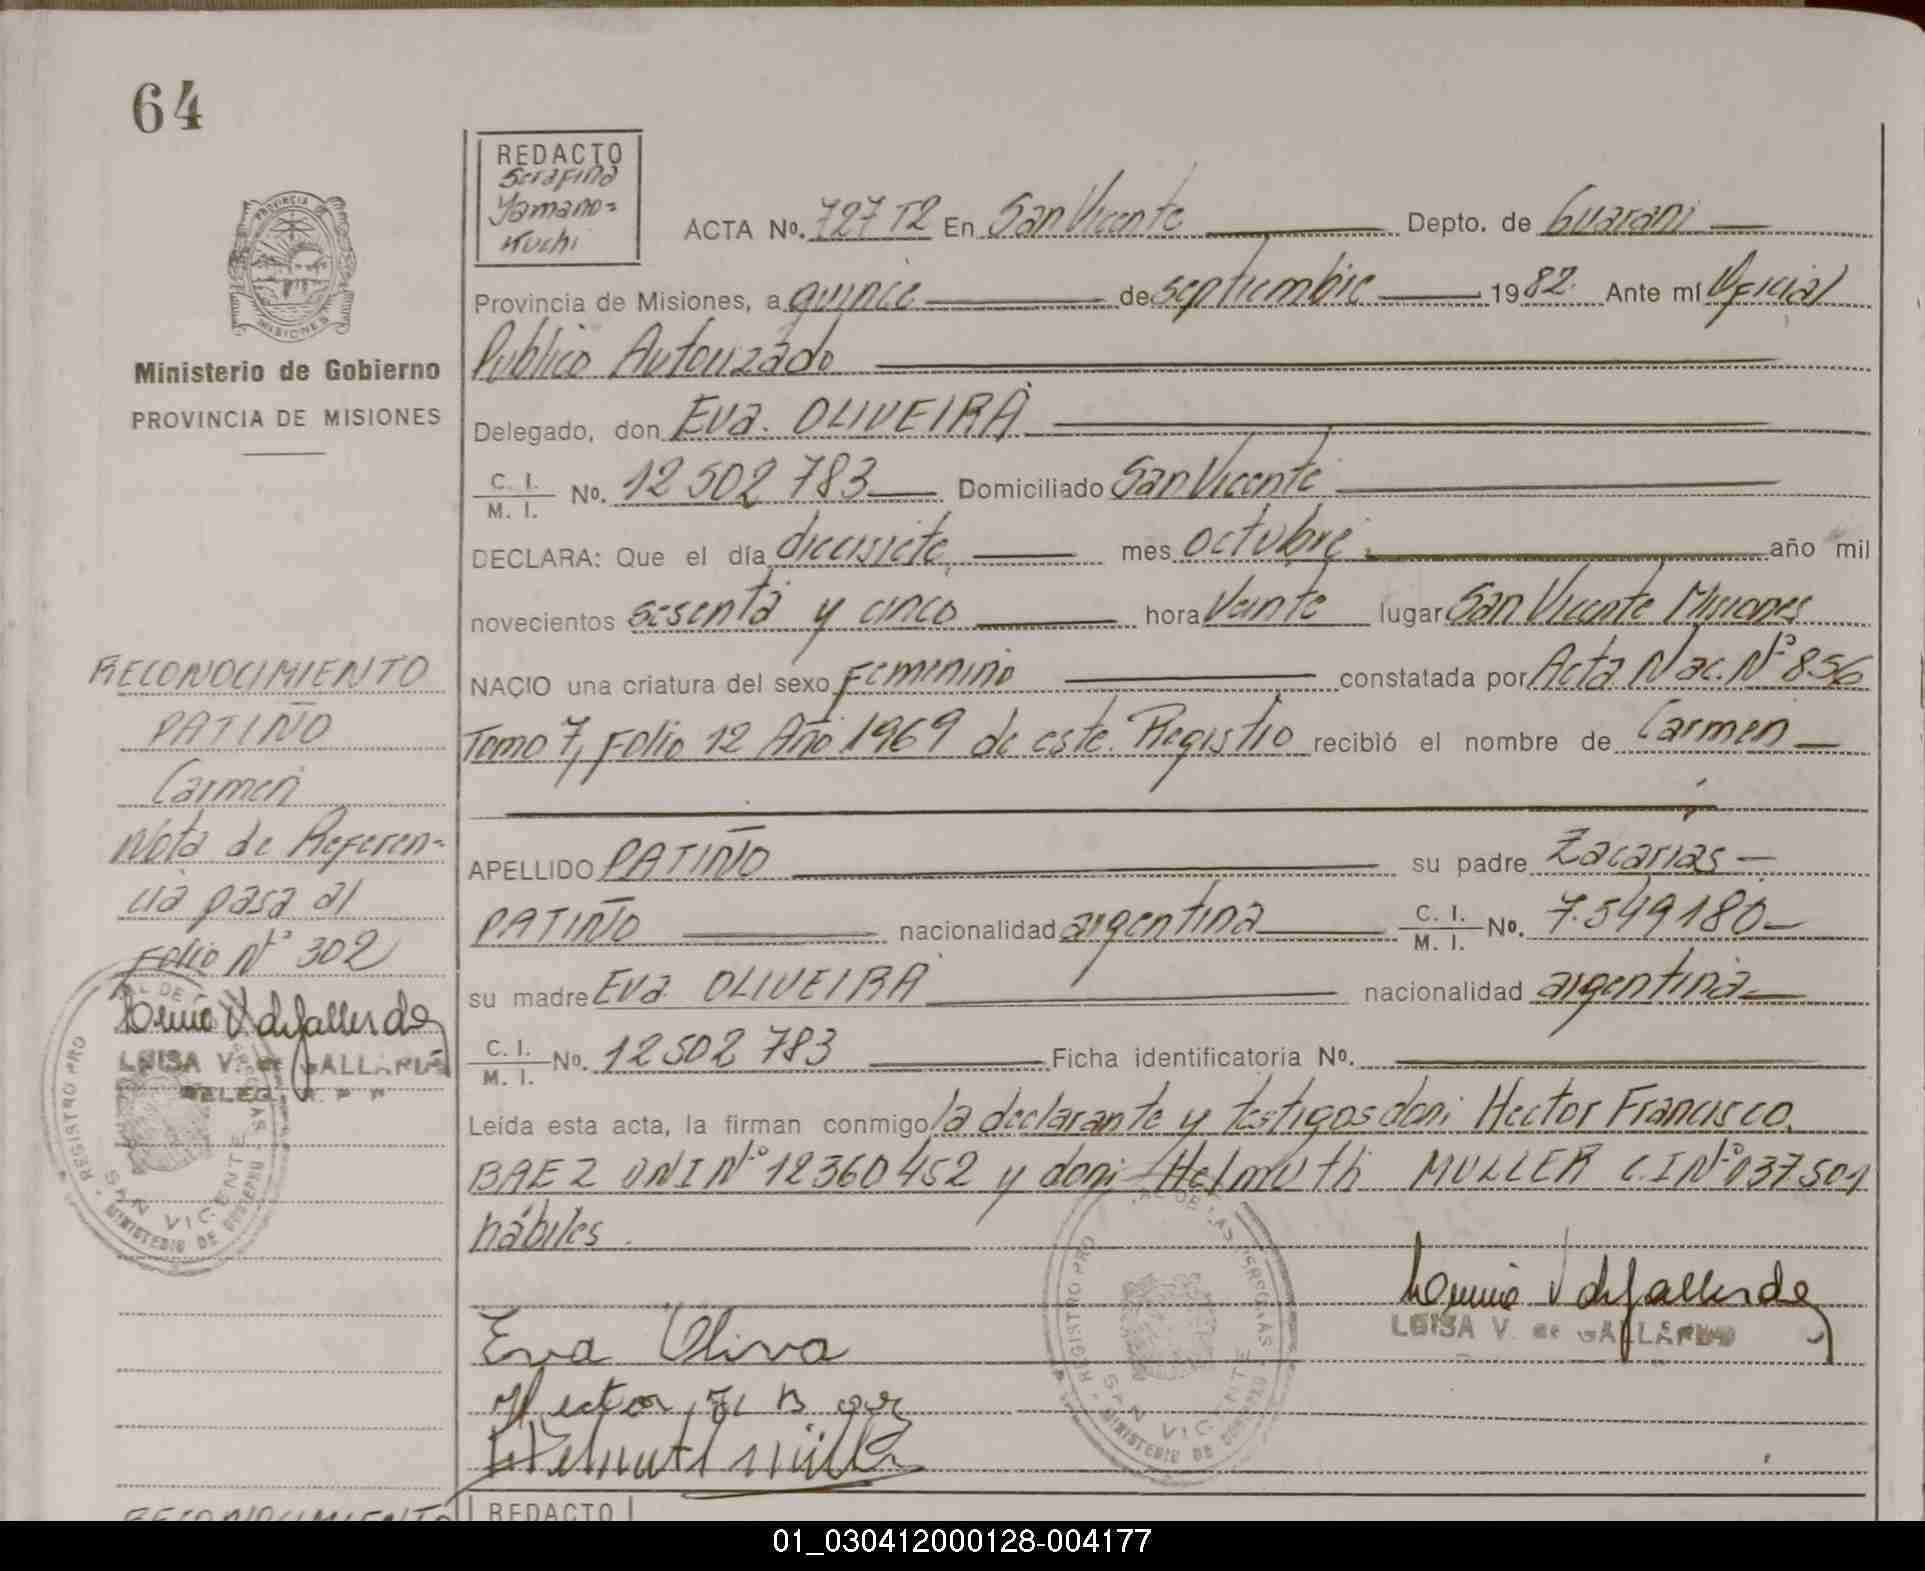 64
REDACTO
Serafina
Yamano=
kuchi
ACTA No. 727 T2 En San Vicente Depto. de Guaraní
Provincia de Misiones, a quince de septiembre 1982. Ante mí Oficial
Publico Autorizado
Delegado, don Eva. OLIVEIRA
C. I.
M. I. No. 12 502 783 Domiciliado San Vicente
DECLARA: Que el día diecisiete mes octubre año mil
novecientos sesenta y cinco hora Veinte lugar San Vicente Misiones
NACIO una criatura del sexo femenino constatada por Acta Nac. Nº 856
Tomo 7, Folio 12 Año 1969 de este Registro recibió el nombre de Carmen
APELLIDO PATIÑO su padre Zacarias
PATIÑO nacionalidad argentina C. I.
M. I. No. 7.549180
su madre Eva OLIVEIRA nacionalidad argentina
C. I.
M. I. No. 12 502 783 Ficha identificatoria No.
Leída esta acta, la firman conmigo la declarante y testigos don: Hector Francisco
BAEZ DNI Nº 12360452 y don: Helmuth MULLER C.I Nº 037.501
hábiles.
Eva Oliva
Hector
Helmuth Müller
LUISA V. de GALLARDO
REGISTRO PRO AL DE LAS PERSONAS
SAN VICENTE
MINISTERIO DE GOBIERNO
PROVINCIA
MISIONES
Ministerio de Gobierno
PROVINCIA DE MISIONES
RECONOCIMIENTO
PATIÑO
Carmen
Nota de Referen=
cia pasa al
Folio Nº 302
LUISA V. de GALLARDO
DELEG.
REGISTRO PRO AL DE
SAN VICENTE
MINISTERIO DE GOBIERNO
RECONOCIMIENTO
REDACTO
01_030412000128-004177